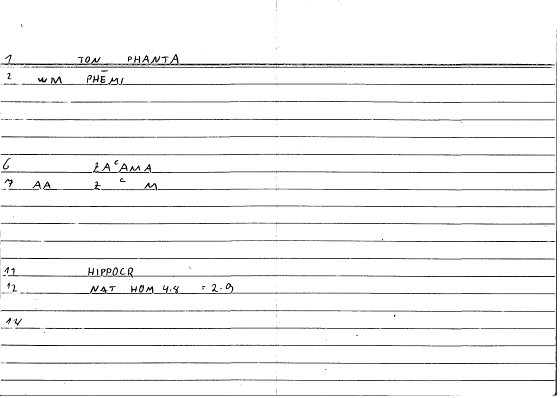 1 TON PHANTA
2 WM PHĒMI
6 ZACAMA
7 AA Z C M
11 HIPPOCR
12 NAT HOM 4.8 = 2.9
14